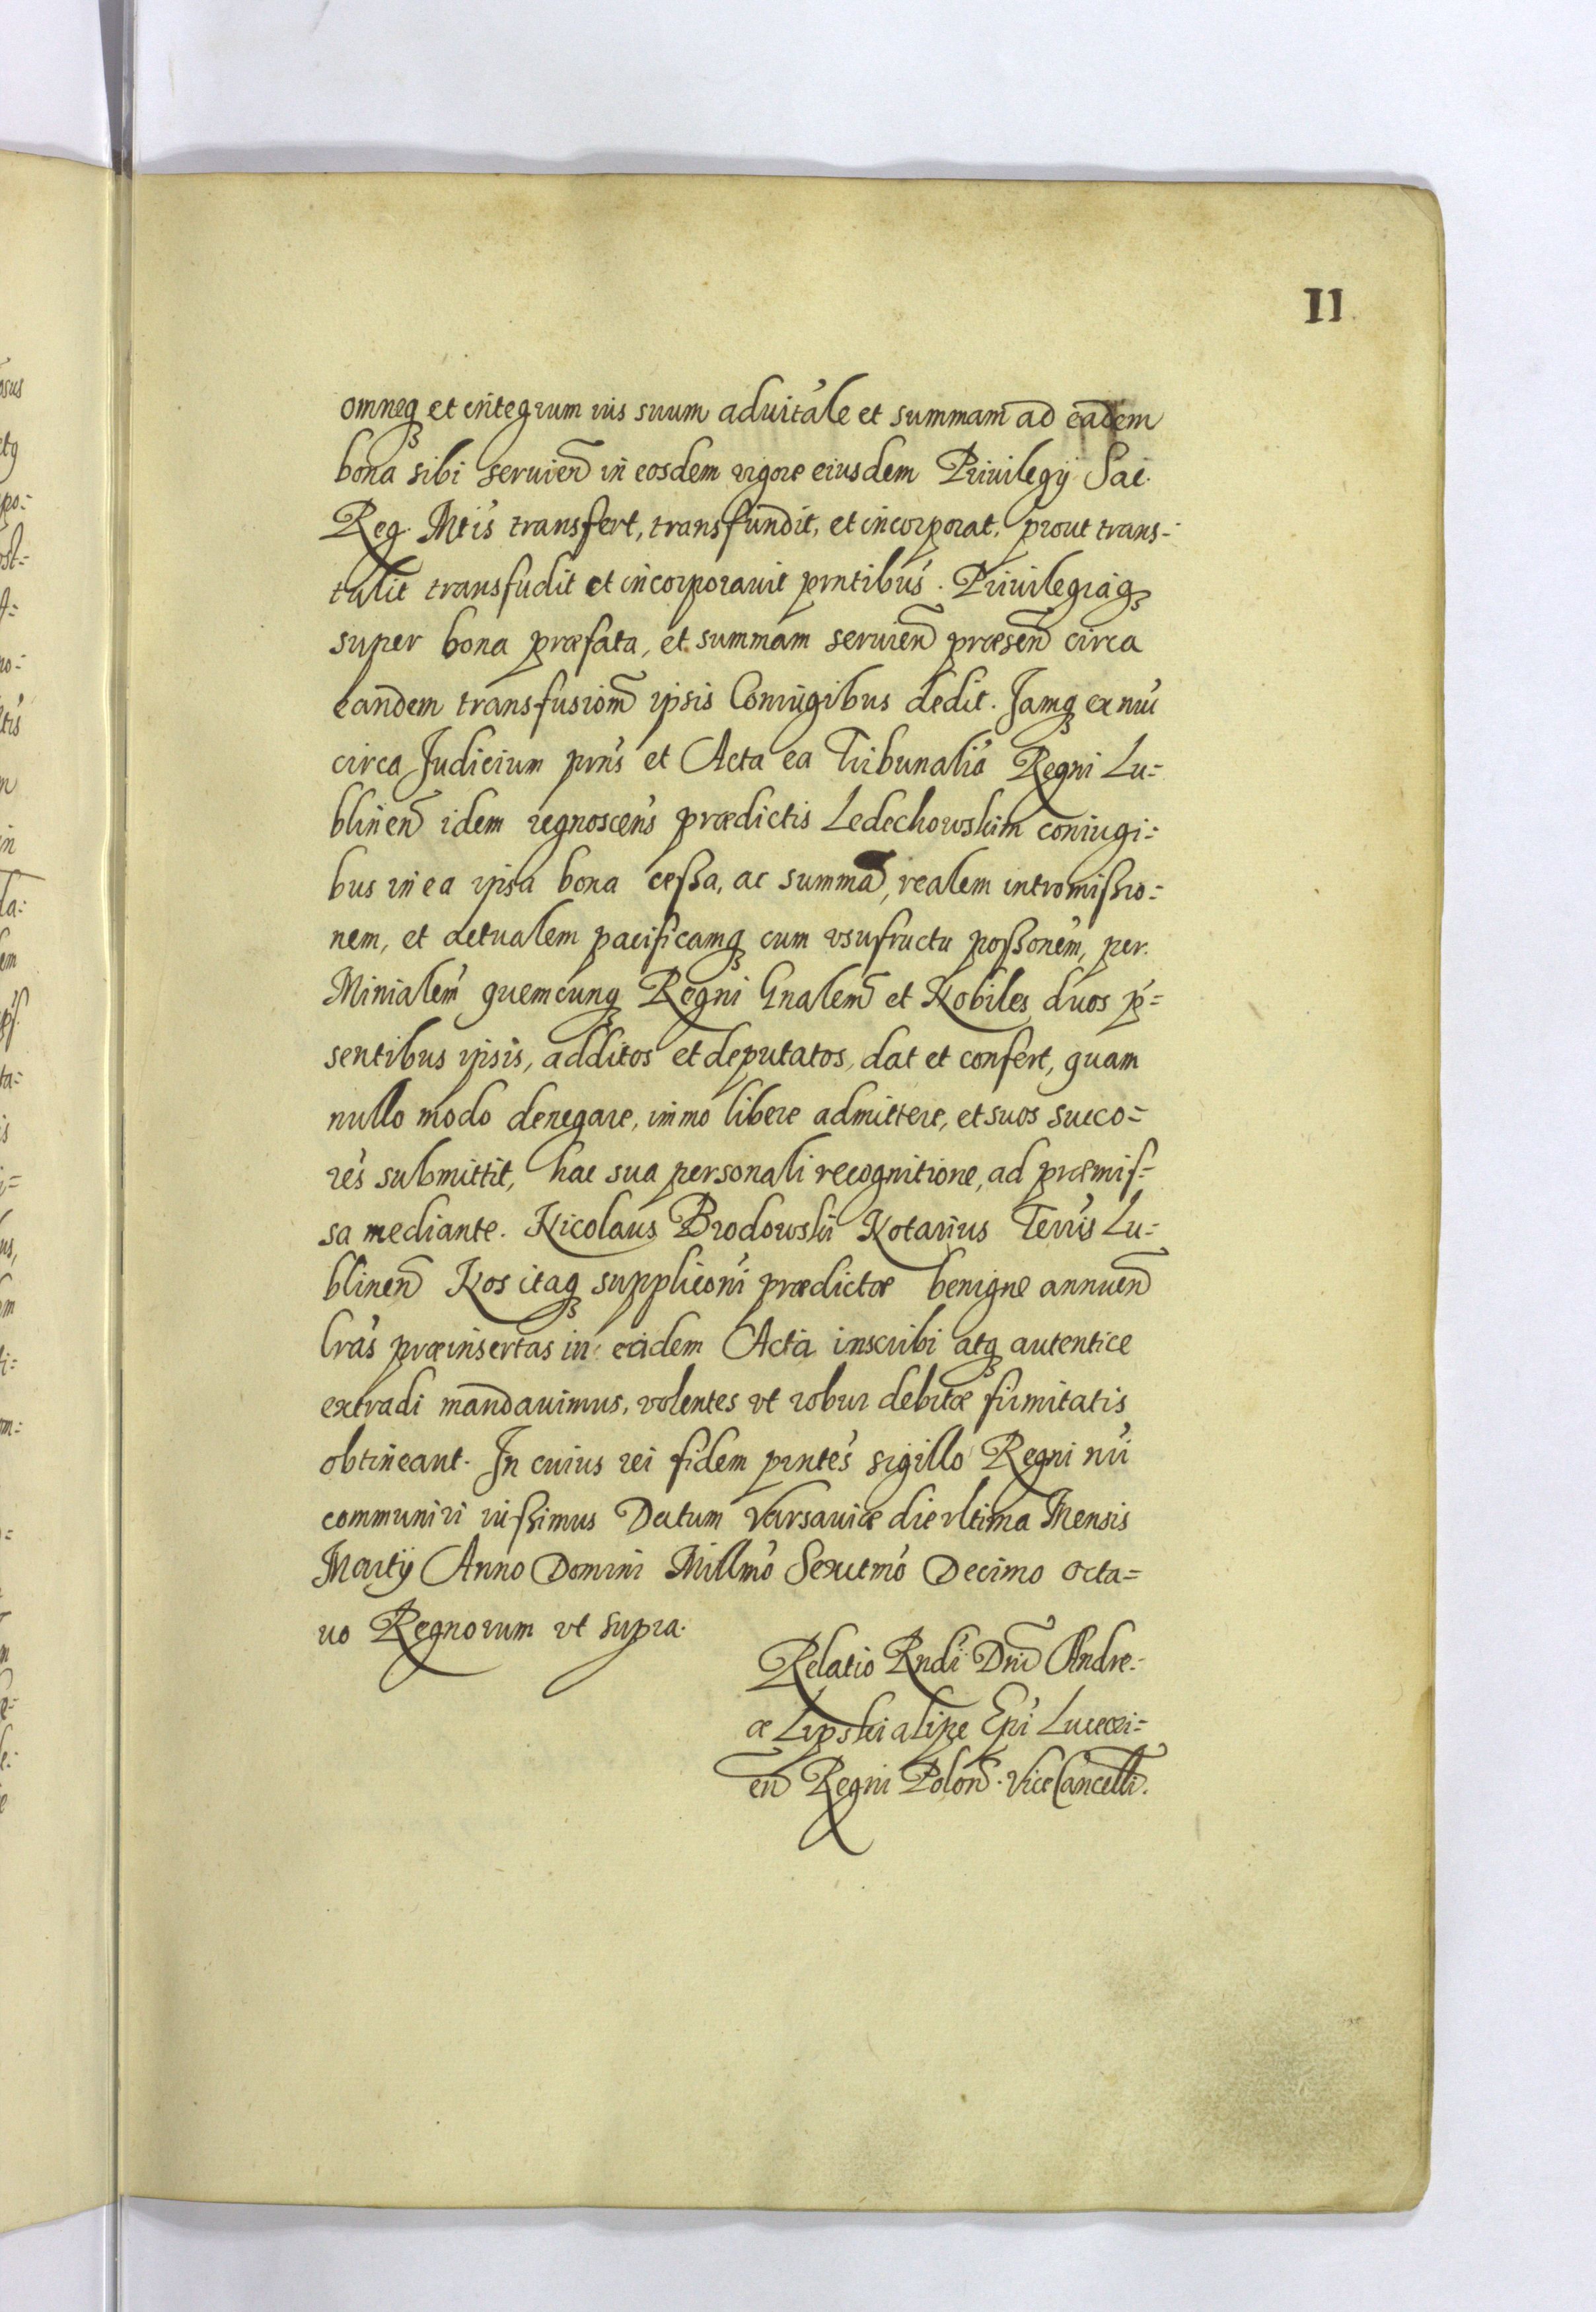 11
omneq₃ et integrum ius suum aduitále et summam ad eadem
bona sibi seruien̄ in eosdem vigore eiusdem Priuilegij Sac.
Reg. Mtis transfert, transfundit, et incorporat, prout trans-
tulit transfudit et incorporauit pn̄tibus. Priuilegiaq₃
super bona præfata, et summam seruien̄ præsen̄ circa
eandem transfusiom̄ ipsis Coniugibus dedit. Jamq₃ ex nu̓
circa Judicium pn̄s et Acta ea Tribunalia Regni Lu=
blinen̄ idem regnoscen̓s prædictis Ledechowskim coniugi=
bus in ea ipsa bona cessa, ac summā, realem intromissio=
nem, et actualem pacificamq₃ cum vsufructu possone̓m, per.
Miniale̓m quemcunq₃ Regni Gnalem̄ et Nobiles duos p̓=
sentibus ipsis, additos et deputatos, dat et confert, quam
nullo modo denegare, immo libere admittere, et suos succo=
re̓s submittit, hac sua personali recognitione, ad præmis=
sa mediante. Nicolaus Brodowski Notarius Terris̓ Lu=
blinen̄ Nos itaq₃ suppliconi̓ prædictæ benigne annuen̄
lra̓s præinsertas in eadem Acta inscribi atq₃ autentice
extradi mandauimus, volentes vt robur debitæ firmitatis
obtineant. In cuius rei fidem pn̄te̓s sigillo Regni nri̓
communiri iussimus Datum Varsauiæ die vltima Mensis
Martij Anno Domini Millmo̓ Sexctmo̓ Decimo octa=
uo Regnorum vt supra.
Relatio Rndi̓ Dni̓ Andre=
æ Lipski a lipe Epi̓ Luceori=
en̄ Regni Polon̄. ViceCancelli̓.